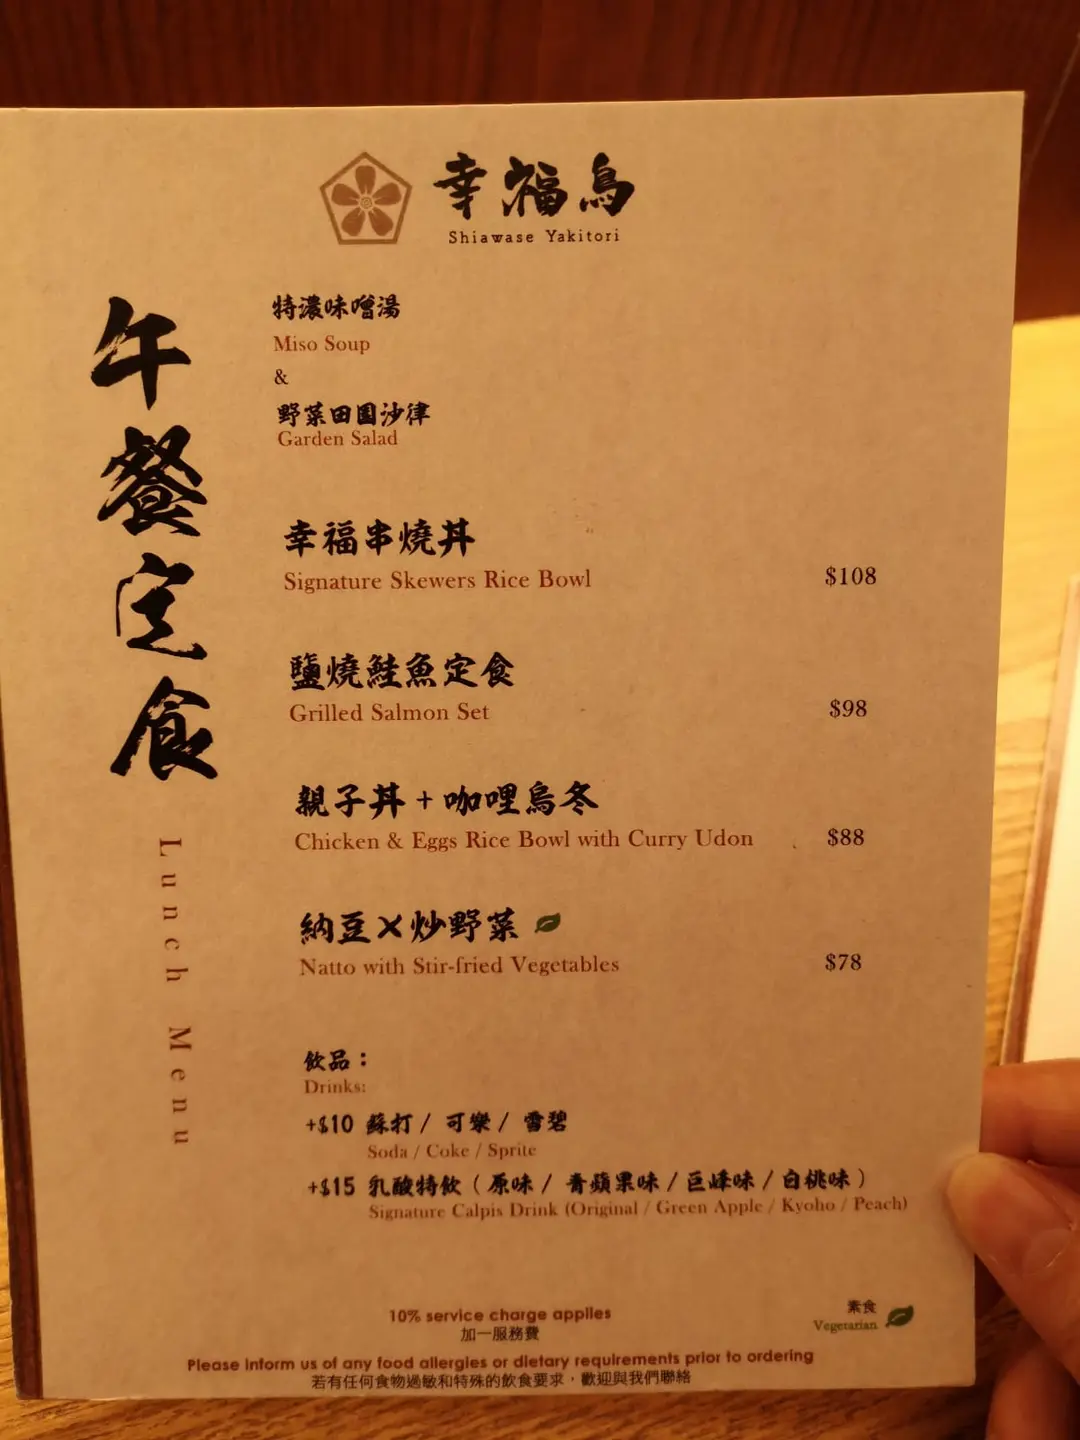 幸福鳥
Shiawase Yakitori
午餐定食
Lunch Menu
特濃味噌湯
Miso Soup
&
野菜田園沙律
Garden Salad
幸福串燒丼
Signature Skewers Rice Bowl $108
鹽燒鮭魚定食
Grilled Salmon Set $98
親子丼+咖哩烏冬
Chicken & Eggs Rice Bowl with Curry Udon $88
納豆×炒野菜
Natto with Stir-fried Vegetables $78
飲品：
Drinks:
+$10 蘇打 / 可樂 / 雪碧
Soda / Coke / Sprite
+$15 乳酸特飲（原味 / 青蘋果味 / 巨峰味 / 白桃味）
Signature Calpis Drink (Original / Green Apple / Kyoho / Peach)
10% service charge applies
加一服務費
素食
Vegetarian
Please inform us of any food allergies or dietary requirements prior to ordering
若有任何食物過敏和特殊的飲食要求，歡迎與我們聯絡